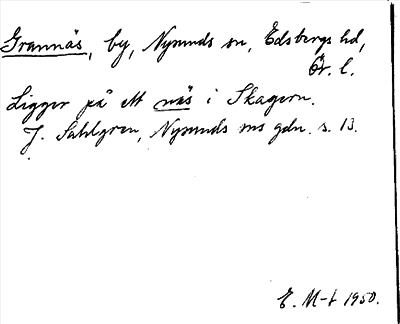 Grannäs, by, Nysunds sn, Edsbergs hd,
Ör. l.
Ligger på ett näs i Skagern.
J. Sahlgren, Nysunds sns gdn. s. 13.
E. M-t 1950.